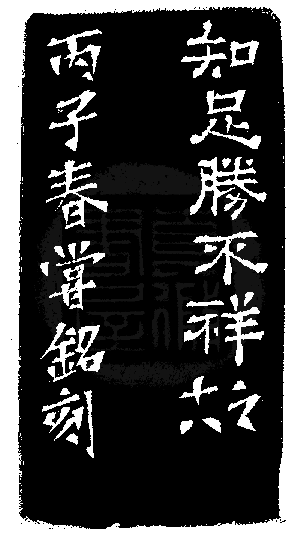 知足勝不祥
丙子春嘗銘刻